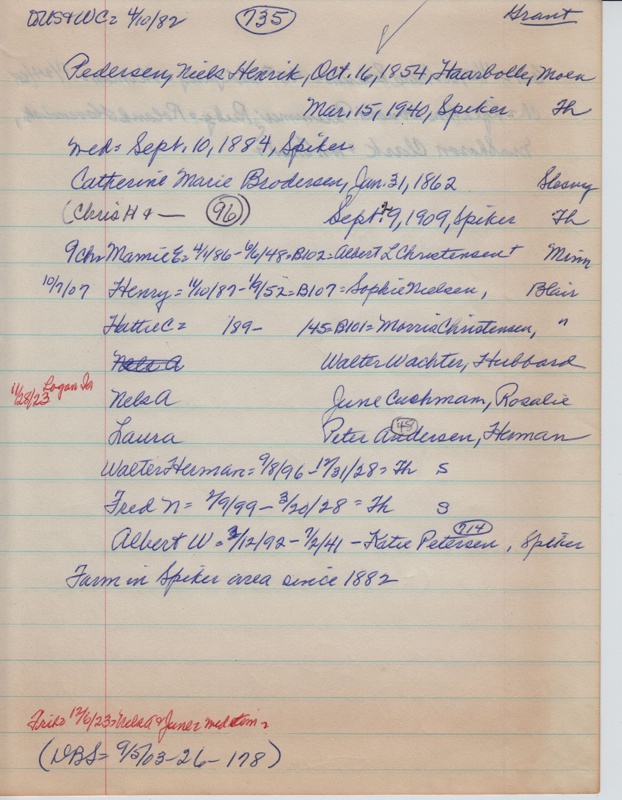 US & WC = 4/10/82 735 Grant
Pedersen, Niels Henrik, Oct. 16, 1854, Haarbolle, Moen
Mar. 15, 1940, Spiker Th
med = Sept. 10, 1884, Spiker
Catherine Marie Brodersen, Jan. 31, 1862 Slesvig
(Chris H & — 96) Sept. 29, 1909, Spiker Th
9 ch = Mamie E = 4/1/86 - 6/6/48 = B102 = Albert L Christensen + Minn
10/7/07 Henry = 11/10/87 - 1/9/52 = B107 = Sophie Nielsen, Blair
Hattie C = 189- 145 = B101 = Morris Christensen, "
Nels A Walter Wachter, Hubbard
11/28/23 Logan Ia Nels A June Cushman, Rosalie
Laura Peter Andersen, Herman 48
Walter Herman = 9/8/96 - 12/31/28 = Th S
Fred N = 2/9/99 - 3/20/28 = Th S
Albert W = 3/12/92 - 7/2/41 - Katie Petersen 714, Spiker
Farm in Spiker area since 1882
12/6/23 = Nels A & June med
(DBS = 9/5/03 - 26 - 178)